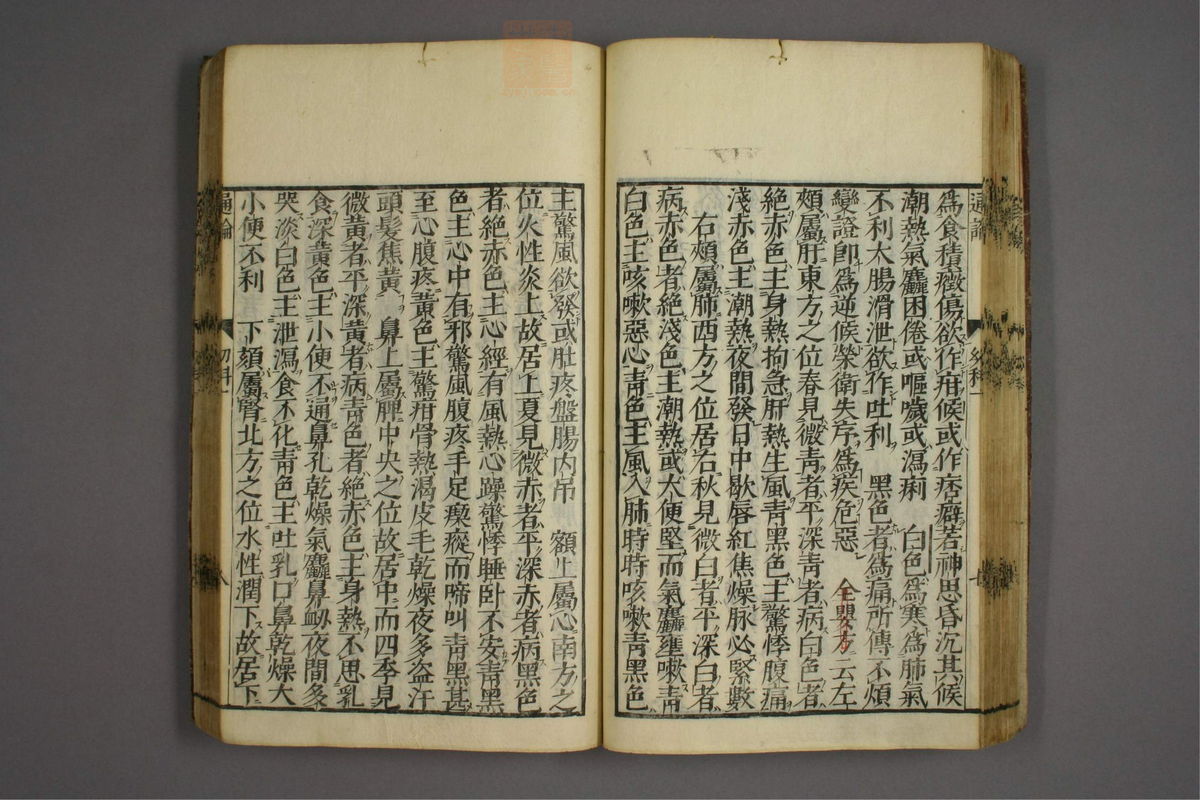 爲食積癥傷欲作疳候或作痞癖若神思昏沉其候
潮熱氣麤困倦或嘔噦或瀉痢　白色爲寒爲肺氣
不利大腸滑泄欲作吐利　黑色者爲痛所傳不煩
變證卽爲逆候榮衞失序爲疾危惡　全嬰方云左
頰屬肝東方之位春見微青者平深青者病白色者
絶赤色主身熱拘急肝熱生風青黑色主驚悸腹痛
淺赤色主潮熱夜間發日中歇唇紅焦燥脉必緊數
右頰屬肺西方之位居右秋見微白者平深白者
病赤色者絶淺色主潮熱或大便堅而氣麤壅嗽青
白色主咳嗽惡心青色主風入肺時時咳嗽青黑色
主驚風欲發或肚疼盤腸内吊　額上屬心南方之
位火性炎上故居上夏見微赤者平深赤者病黑色
者絶赤色主心經有風熱心躁驚悸睡卧不安青黑
色主心中有邪驚風腹疼手足瘈瘲而啼叫青黑甚
至心腹疼黄色主驚疳骨熱渴皮毛乾燥夜多盗汗
頭髮焦黄　鼻上屬脾中央之位故居中而四季見
微黄者平深黄者病青色者絶赤色主身熱不思乳
食深黄色主小便不通鼻孔乾燥氣麤鼻衂夜間多
哭淡白色主泄瀉食不化青色主吐乳口鼻乾燥大
小便不利　下頦屬腎北方之位水性潤下故居下
通論
幼科一
八